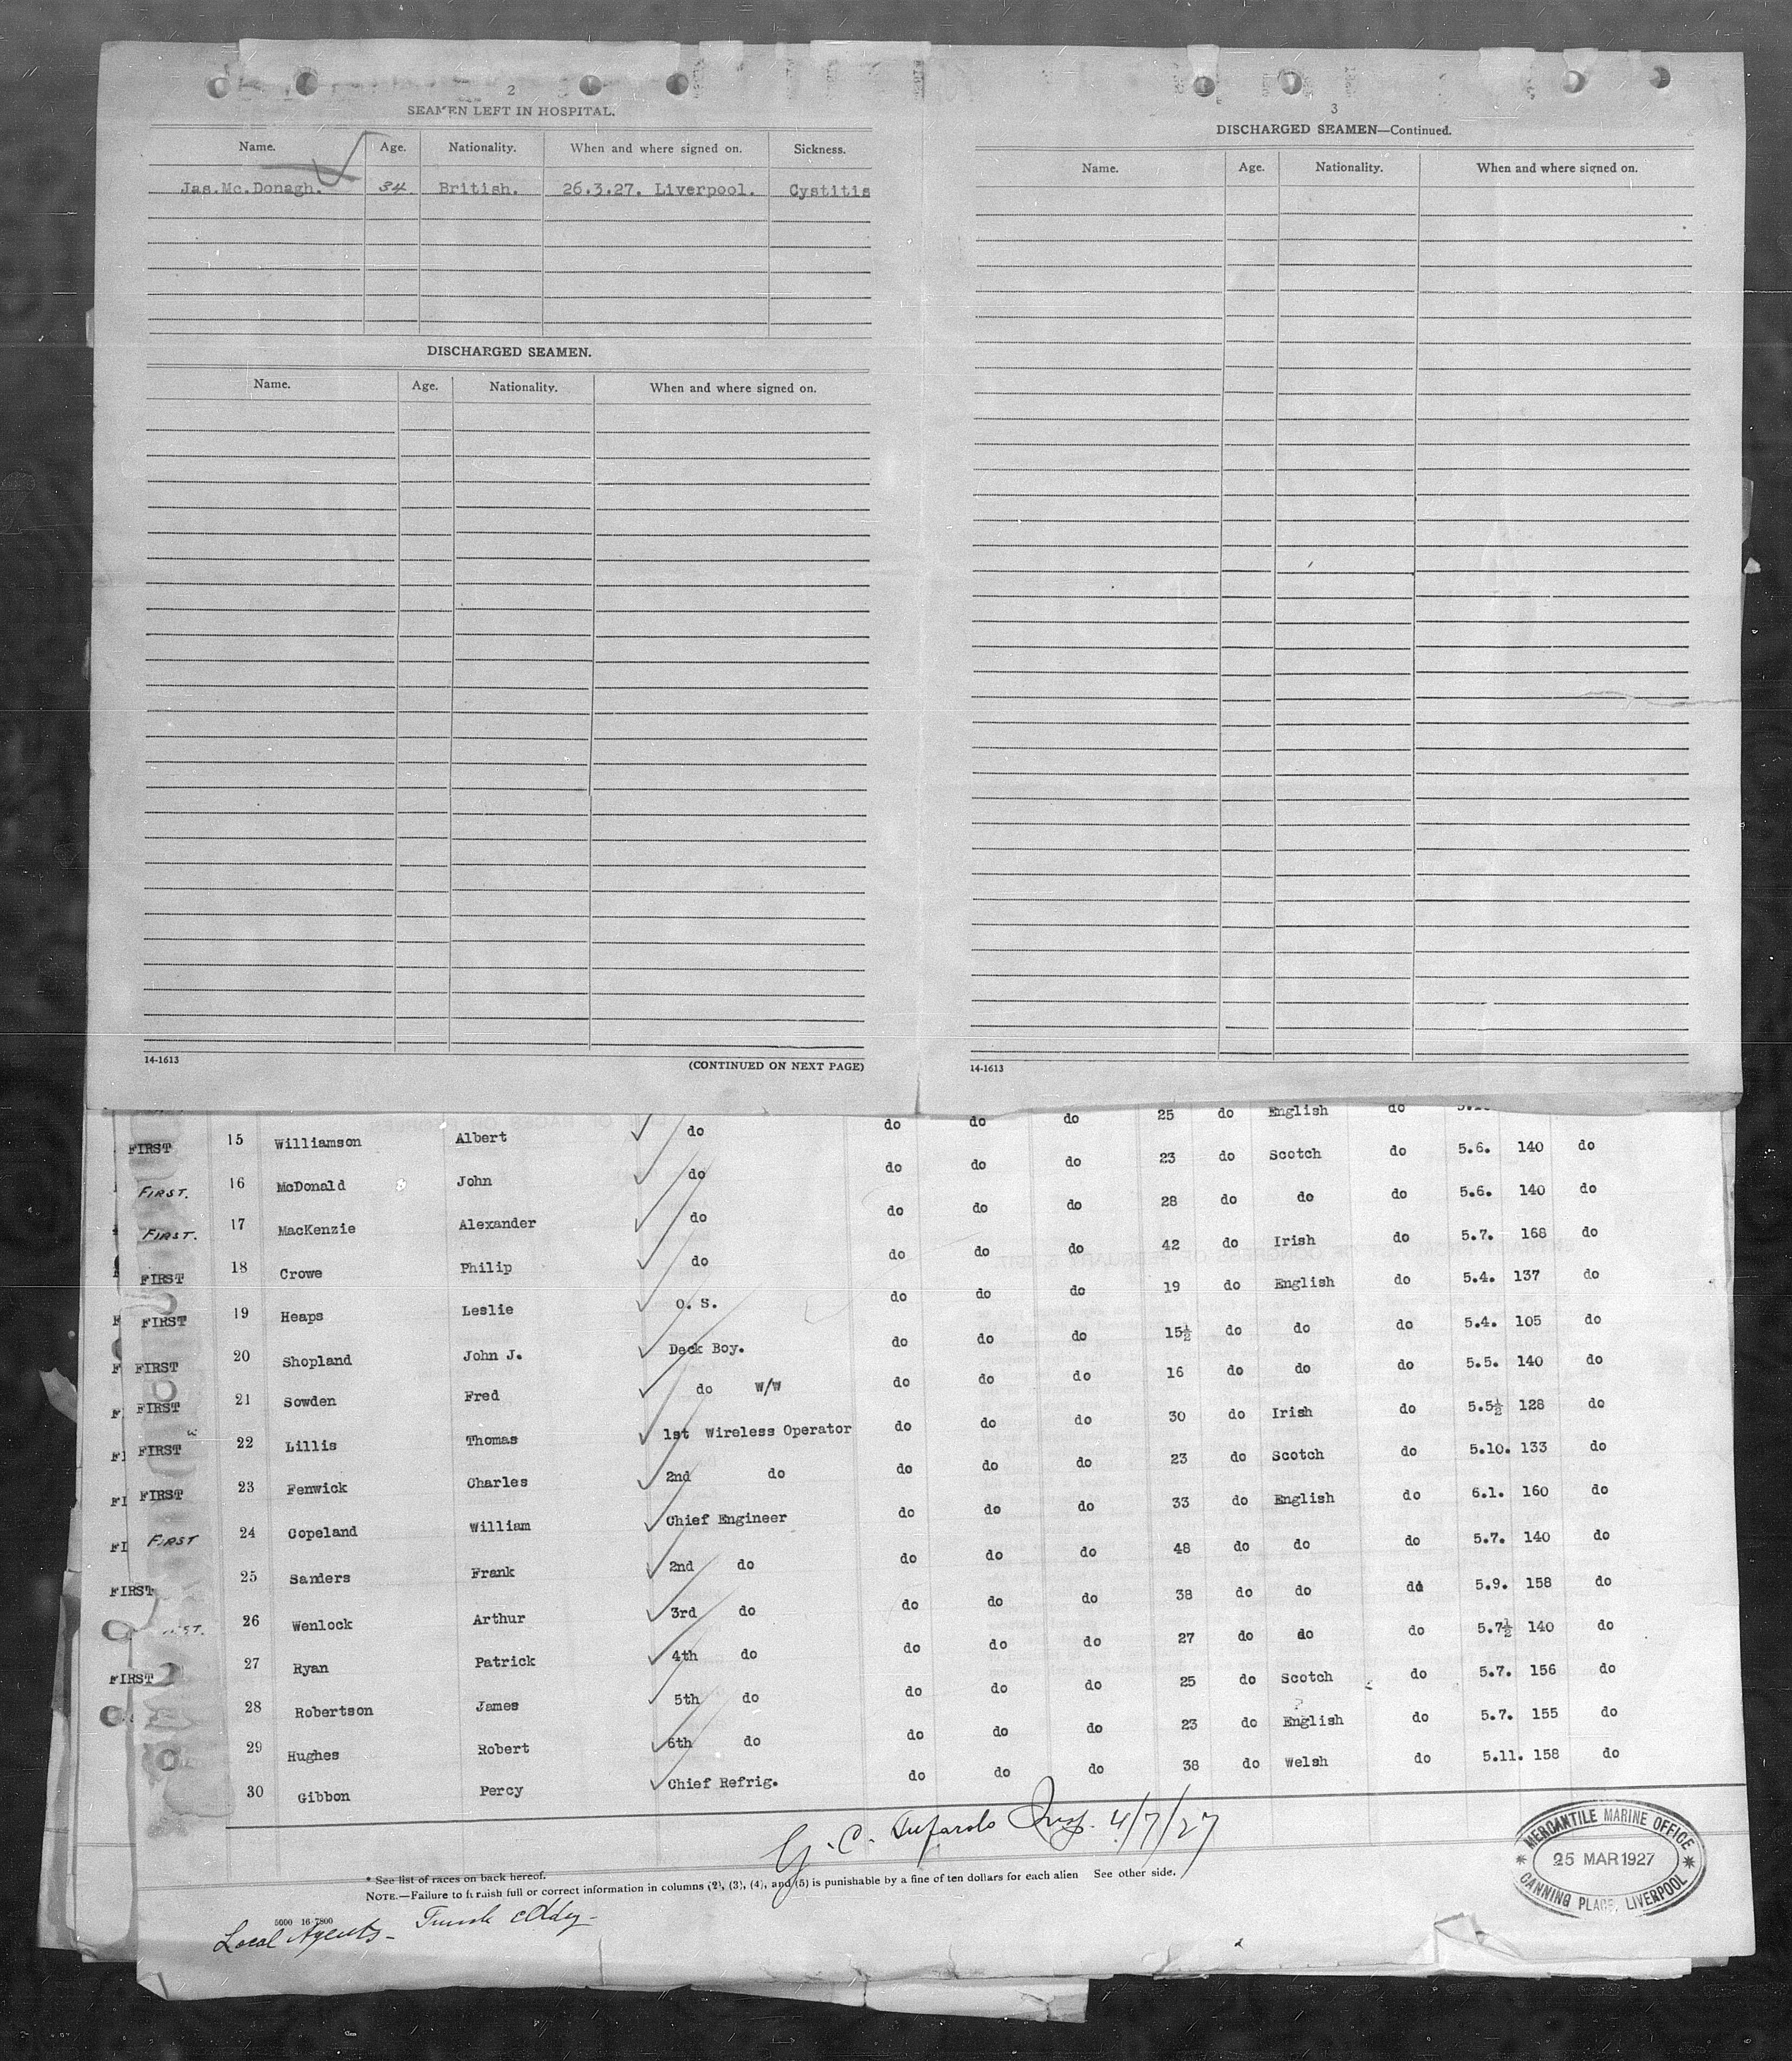 2
SEAMEN LEFT IN HOSPITAL.
Name. Age. Nationality. When and where signed on. Sickness.
Jas.Mc.Donagh. 34 British. 26.3.27. Liverpool. Cystitis
DISCHARGED SEAMEN.
Name. Age. Nationality. When and where signed on.
14-1613 (CONTINUED ON NEXT PAGE)
3
DISCHARGED SEAMEN—Continued.
Name. Age. Nationality. When and where signed on.
14-1613
FIRST 15 Williamson Albert do do do do 25 do English do
FIRST. 16 McDonald John do do do do 23 do Scotch do 5.6. 140 do
FIRST. 17 MacKenzie Alexander do do do do 28 do do do 5.6. 140 do
FIRST 18 Crowe Philip do do do do 42 do Irish do 5.7. 168 do
FIRST 19 Heaps Leslie O. S. do do do 19 do English do 5.4. 137 do
FIRST 20 Shopland John J. Deck Boy. do do do 15½ do do do 5.4. 105 do
FIRST 21 Sowden Fred do W/W do do do 16 do do do 5.5. 140 do
FIRST 22 Lillis Thomas 1st Wireless Operator do do do 30 do Irish do 5.5½ 128 do
FIRST 23 Fenwick Charles 2nd do do do do 23 do Scotch do 5.10. 133 do
FIRST 24 Copeland William Chief Engineer do do do 33 do English do 6.1. 160 do
FIRST 25 Sanders Frank 2nd do do do do 48 do do do 5.7. 140 do
26 Wenlock Arthur 3rd do do do do 38 do do do 5.9. 158 do
FIRST 27 Ryan Patrick 4th do do do do 27 do do do 5.7½ 140 do
28 Robertson James 5th do do do do 25 do Scotch do 5.7. 156 do
29 Hughes Robert 6th do do do do 23 do ? English do 5.7. 155 do
30 Gibbon Percy Chief Refrig. do do do 38 do Welsh do 5.11. 158 do
G. C. Insp. 4/7/27
* See list of races on back hereof.
NOTE.—Failure to furnish full or correct information in columns (2), (3), (4), and (5) is punishable by a fine of ten dollars for each alien See other side.
5000 16-7800
Local Agents-
MERCANTILE MARINE OFFICE
25 MAR 1927
CANNING PLACE, LIVERPOOL